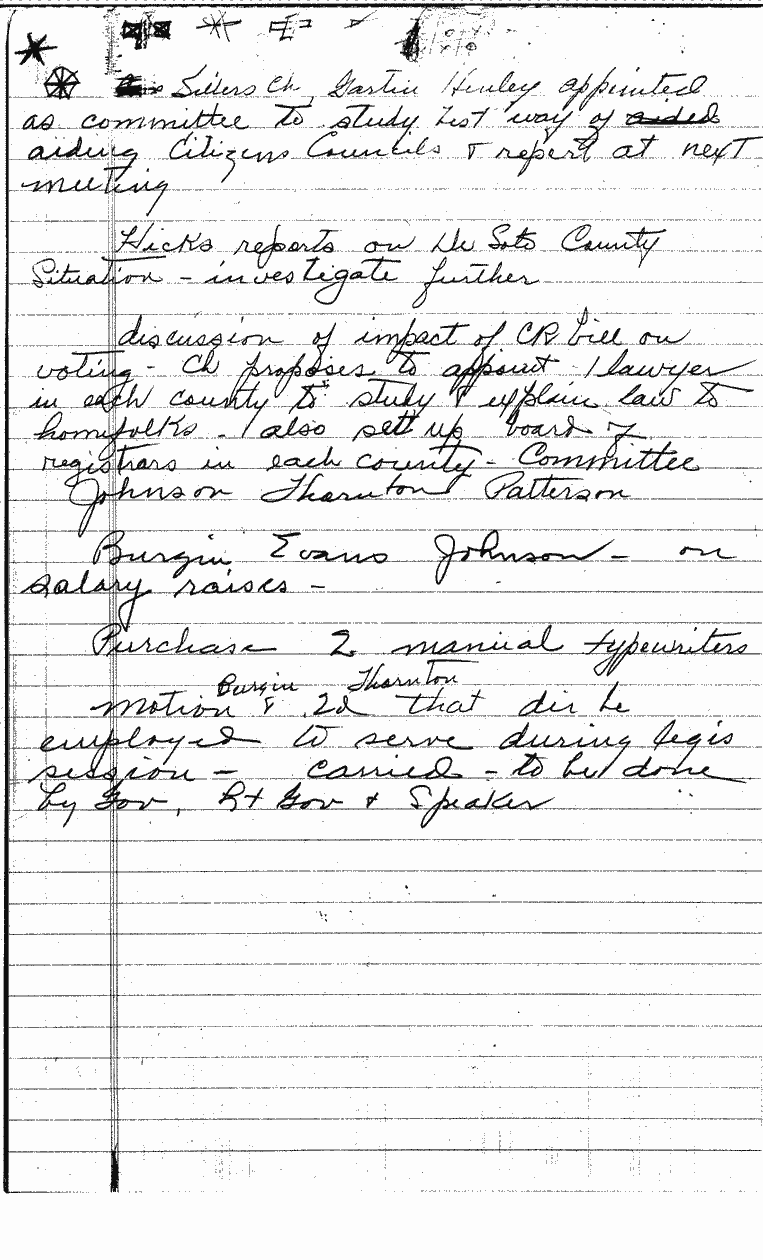 Sillers Ch, Gartin Henley appointed
as committee to study best way of aided
aiding Citizens Councils & report at next
meeting
Hicks reports on De Soto County
Situation - investigate further
discussion of impact of CR bill on
voting - Ch proposes to appoint 1 lawyer
in each county to study & explain law to
homefolks - also set up board of
registrars in each county - Committee
Johnson Thornton Patterson
Burgin, Evans Johnson - on
salary raises -
Purchase 2 manual typewriters
Burgin Thornton
Motion & 2d that dir be
employed to serve during legis
session - carried - to be done
by Gov, Lt Gov & Speaker